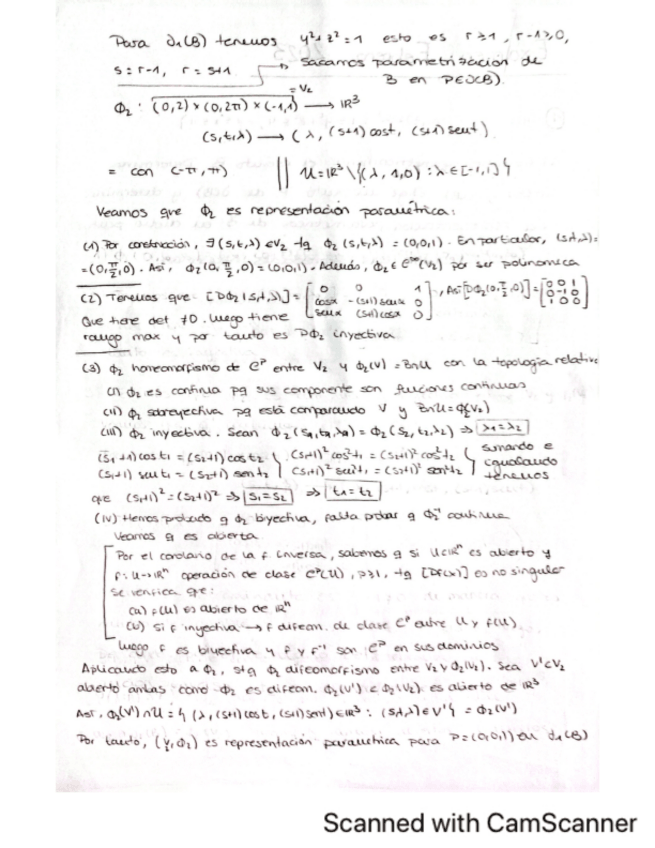 Para ∂₁(B) tenemos y²+z²=1 esto es r≥1, r-1≥0,
s=r-1, r=s+1 → Sacamos parametrización de B en P∈∂(B).
Φ₂: (0,2)×(0,2π)×(-1,1) = V₂ → ℝ³
(s,t,λ) → (λ, (s+1)cost, (s+1)sent)
= con (-π,π) || U=ℝ³\{(λ,1,0): λ∈[-1,1]}
Veamos que Φ₂ es representación paramétrica:
(1) Por construcción, ∃(s,t,λ)∈V₂ tq Φ₂(s,t,λ)=(0,0,1). En particular, (s,t,λ)=
=(0,π/2,0). Así, Φ₂(0,π/2,0)=(0,0,1). Además, Φ₂∈C^∞(V₂) por ser polinómica
(2) Tenemos que [DΦ₂(s,t,λ)]=[0 0 1; cost -(s+1)sent 0; sent (s+1)cost 0], Así [DΦ₂(0,π/2,0)]=[0 0 1; 0 -1 0; 1 0 0]
Que tiene det ≠0. Luego tiene
rango max y por tanto es DΦ₂ inyectiva
(3) Φ₂ homeomorfismo de C^p entre V₂ y Φ₂(V)=B∩U con la topología relativa
(i) Φ₂ es continua pq sus componente son funciones continuas
(ii) Φ₂ sobreyectiva pq está comparando V y B∩U=Φ₂(V₂)
(iii) Φ₂ inyectiva. Sean Φ₂(s₁,t₁,λ₁)=Φ₂(s₂,t₂,λ₂) ⇒ λ₁=λ₂
(s₁+1)cost₁=(s₂+1)cost₂ } (s₁+1)²cos²t₁=(s₂+1)²cos²t₂ } sumando e
(s₁+1)sent₁=(s₂+1)sent₂ } (s₁+1)²sen²t₁=(s₂+1)²sen²t₂ } igualando tenemos
que (s₁+1)²=(s₂+1)² ⇒ s₁=s₂ ⇒ t₁=t₂
(iv) Hemos probado q Φ₂ biyectiva, falta probar q Φ₂⁻¹ continua
Veamos q es abierta.
Por el corolario de la f. inversa, sabemos q si U⊂ℝⁿ es abierto y
f:U→ℝⁿ operación de clase C^p(U), p≥1, tq [Df(x)] es no singular
se verifica que:
(a) f(U) es abierto de ℝⁿ
(b) Si f inyectiva → f difeom. de clase C^p entre U y f(U).
Luego f es biyectiva y f y f⁻¹ son C^p en sus dominios
Aplicando esto a Φ₂, Φ₂ difeomorfismo entre V₂ y Φ₂(V₂). Sea V'⊂V₂
abierto como Φ₂ es difeom. Φ₂(V')⊂Φ₂(V₂) es abierto de ℝ³
Así, Φ₂(V')∩U={(λ,(s+1)cost,(s+1)sent)∈ℝ³: (s,t,λ)∈V'}=Φ₂(V')
Por tanto, (V,Φ₂) es representación paramétrica para P=(0,0,1) en ∂₁(B)
Scanned with CamScanner